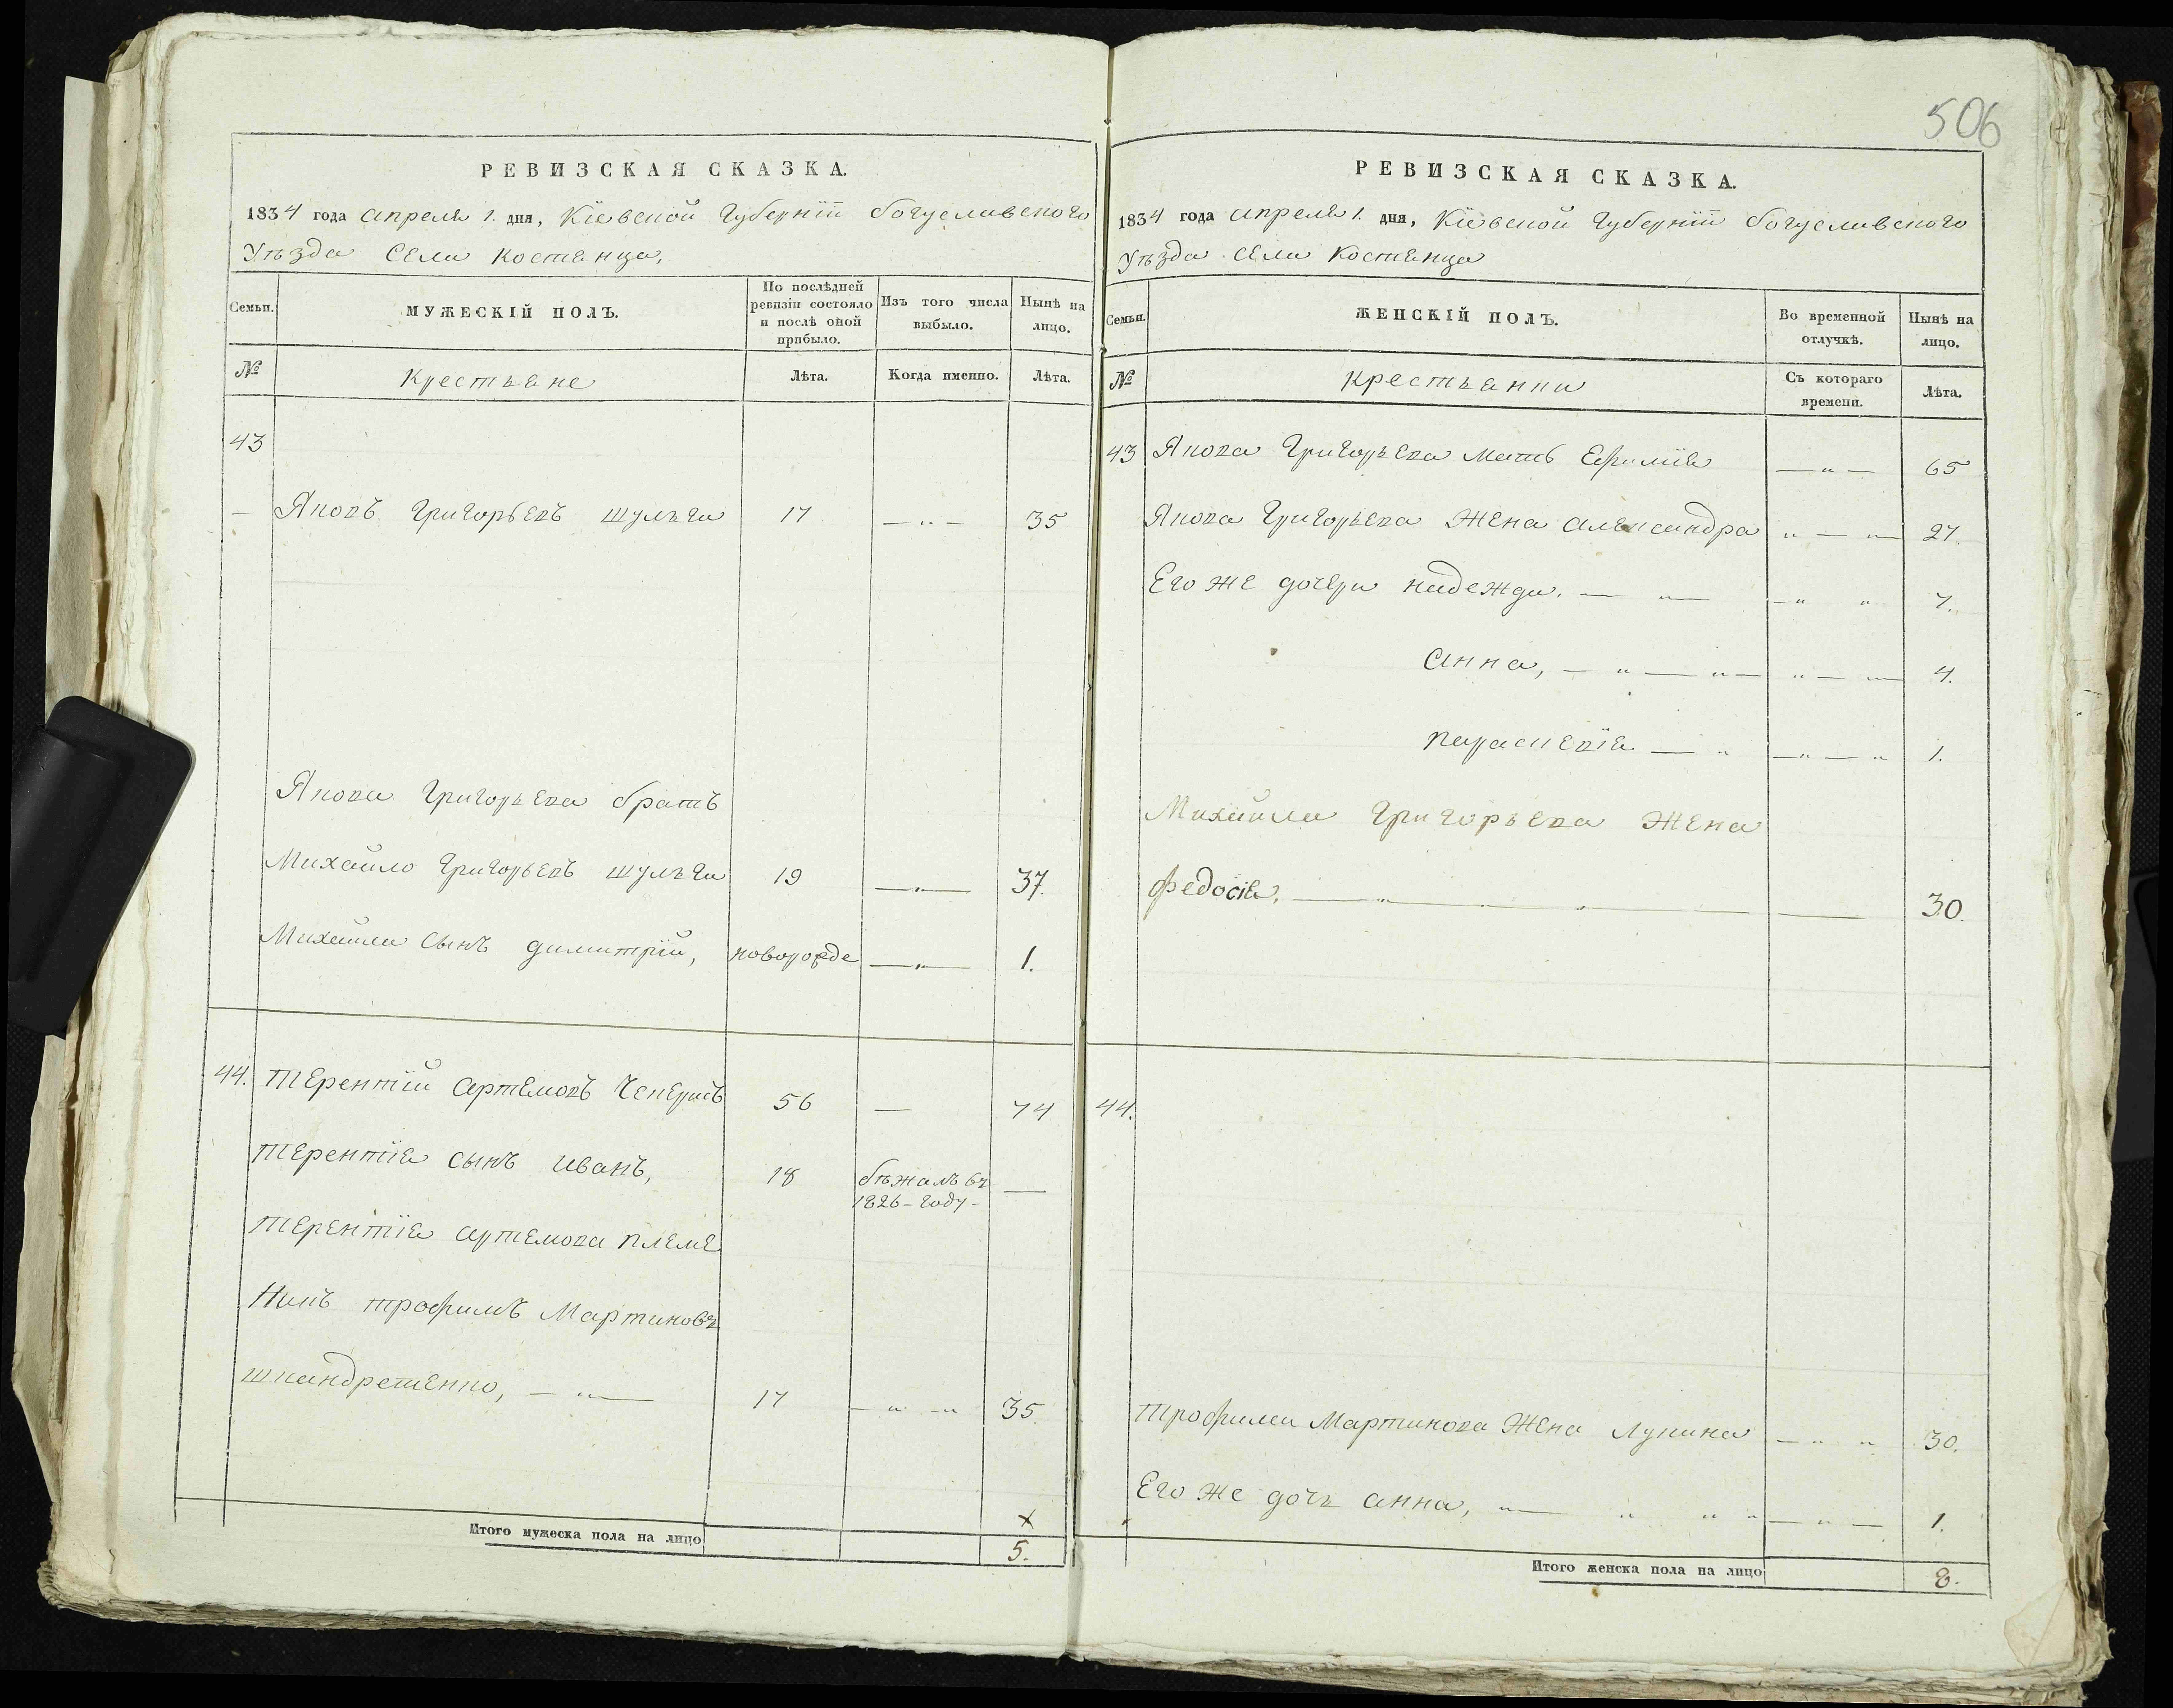 506
РЕВИЗСКАЯ СКАЗКА.
1834 года апреля 1. дня, Кіевской Губерніи богуславского
Уѣзда Села Костянца,
Семьи.
МУЖЕСКІЙ ПОЛЪ.
По послѣдней ревизіи состояло и послѣ оной прибыло.
Изъ того числа выбыло.
Нынѣ на лицо.
№
Крестьяне
Лѣта.
Когда именно.
Лѣта.
43
— Яковъ Григорьевъ шульга 17 — „ — 35
Якова Григорьева братъ
Михайло Григорьевъ шульга 19 — „ — 37.
Михайла сынъ димитрій, новорожде — „ — 1.
44. Терентій артемовъ 56 — 74
Терентія сынъ иванъ, 18 бѣжалъ въ 1826 - году - —
Терентія артемова племе
Никъ трофимъ Мартиновъ
шкандретенко, — „ — 17 — „ — „ 35
Итого мужеска пола на лицо
х
5.
РЕВИЗСКАЯ СКАЗКА.
1834 года апреля 1. дня, Кіевской Губерніи богуславского
Уѣзда Села Костянца
Семьи.
ЖЕНСКІЙ ПОЛЪ.
Во временной отлучкѣ.
Нынѣ на лицо.
№
Крестьянки
Съ котораго времени.
Лѣта.
43 Якова Григорьева мать Ефимія — „ — 65
Якова Григорьева Жена александра „ — „ — 27.
Его же дочери надежда. — „ — — „ „ 7.
анна, — „ — „ — „ — „ — 4.
параскевія — „ — „ — „ 1.
Михайла Григорьева Жена
федосія. — „ — 30.
44.
Трофима Мартинова Жена Лукина — „ „ 30.
Его же дочь анна, „ — „ „ „ — „ — 1.
Итого женска пола на лицо 8.